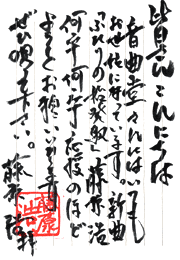 皆さんこんにちは
音曲堂さんにはいつも
お世話になっています。新曲
「ふたりの桜坂」藤原浩
何卒何卒応援のほど
よろしくお願いいたします
ぜひ唄って下さい。
藤原浩 拝